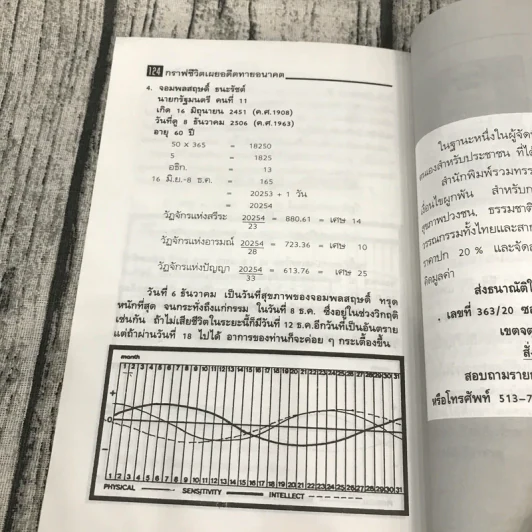 124 กราฟชีวิตเผยอดีตทายอนาคต
4. จอมพลสฤษดิ์ ธนะรัชต์
นายกรัฐมนตรี คนที่ 11
เกิด 16 มิถุนายน 2451 (ค.ศ.1908)
วันที่ดู 8 ธันวาคม 2506 (ค.ศ.1963)
อายุ 60 ปี
50 X 365 = 18250
5 = 1825
อธิก. = 13
16 มิ.ย.-8 ธ.ค. = 165
= 20253 + 1 วัน
= 20254
วัฏจักรแห่งสรีระ 20254/23 = 880.61 = เศษ 14
วัฏจักรแห่งอารมณ์ 20254/28 = 723.36 = เศษ 10
วัฏจักรแห่งปัญญา 20254/33 = 613.76 = เศษ 25
วันที่ 6 ธันวาคม เป็นวันที่สุขภาพของจอมพลสฤษดิ์ ทรุด
หนักที่สุด จนกระทั่งถึงแก่กรรม ในวันที่ 8 ธ.ค. ซึ่งอยู่ในช่วงวิกฤติ
เช่นกัน ถ้าไม่เสียชีวิตในระยะนี้ก็มีวันที่ 12 ธ.ค.อีกวันที่เป็นอันตราย
แต่ถ้าผ่านวันที่ 18 ไปได้ อาการของท่านก็จะค่อย ๆ กระเตื้องขึ้น
month
1 2 3 4 5 6 7 8 9 10 11 12 13 14 15 16 17 18 19 20 21 22 23 24 25 26 27 28 29 30 31
+
0
-
1 2 3 4 5 6 7 8 9 10 11 12 13 14 15 16 17 18 19 20 21 22 23 24 25 26 27 28 29 30 31
PHYSICAL SENSITIVITY INTELLECT
ในฐานะหนึ่งในผู้จัด
สำหรับประชาชน ที่ได้
สำนักพิมพ์รวมทรร
ผูกพัน สำหรับ
สุขภาพปวงชน. ธรรมชาติ
วรรณกรรมทั้งไทยและสาย
ราคาปก 20 % และจัดส
คิดมูลค่า
ส่งธนาณัติใ
เลขที่ 363/20 ซอ
เขตจต
สั่
สอบถามราย
หรือโทรศัพท์ 513-7